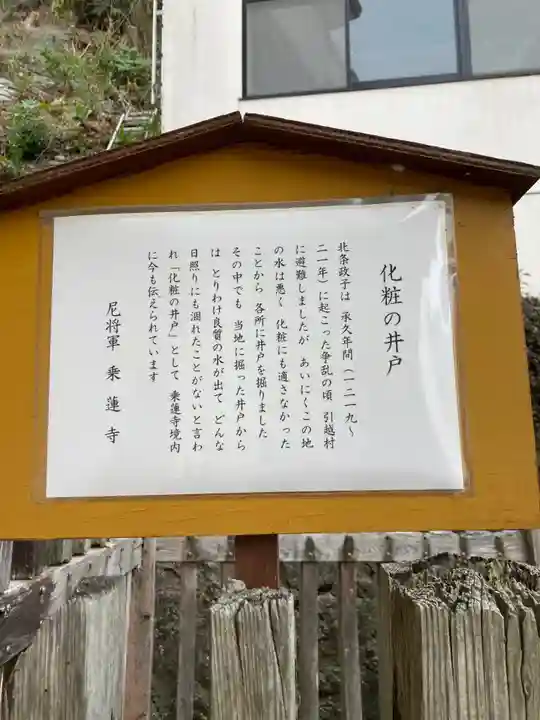 化粧の井戸
北条政子は 承久年間(一二一九〜
二一年)に起こった争乱の頃 引越村
に避難しましたが あいにくこの地
の水は悪く 化粧にも適さなかった
ことから 各所に井戸を掘りました
その中でも 当地に掘った井戸から
は とりわけ良質の水が出て どんな
日照りにも涸れたことがないと言わ
れ「化粧の井戸」として 乗蓮寺境内
に今も伝えられています
尼将軍 乗蓮寺